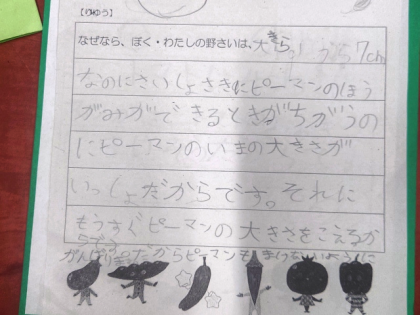 【りゆう】
なぜなら、ぼく・わたしの野さいは、大きさ から7cm
なのにさいしょさきにピーマンのほう
がみができるときがちがうの
にピーマンのいまの大きさが
いっしょだからです。それに
もうすぐピーマンの大きさをこえるか
らです。
だからピーマンも